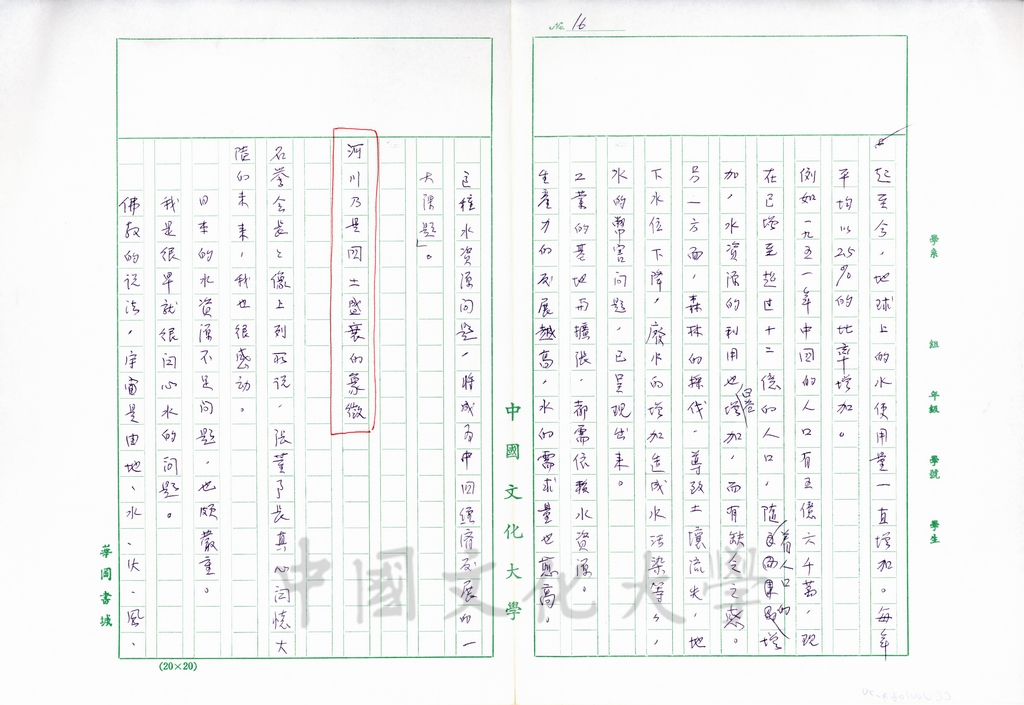 № 16
起至今，地球上的水使用量一直增加。每年
平均以2.5%的比率增加。
例如一九五一年中囯的人口有五億六千萬，現
在已增至超过十二億的人口，隨着人口的增
加，水資源的利用也增加，而有缺乏之感。
另一方面，森林的採伐，導致土壤流失，地
下水位下降，廢水的增加造成水污染等々，
水的弊害问題，已呈现出来。
工業的基地再擴張，都需依赖水資源。
生產力的发展越高，水的需求量也愈高。
這種水資源问题，将成为中囯經濟发展的一
大课题」。
河川乃是囯土盛衰的象徵
名誉会長：像上列所说，張董事長真心闵懷大
陸的未来，我也很感动。
日本的水資源不足问题，也颇嚴重。
我是很早就很闵心水的问题。
佛教的说法，宇宙是由地、水、火、風、
學系
組
年級
學號
學生
中國文化大學
華岡書城
(20×20)
中國文化大學